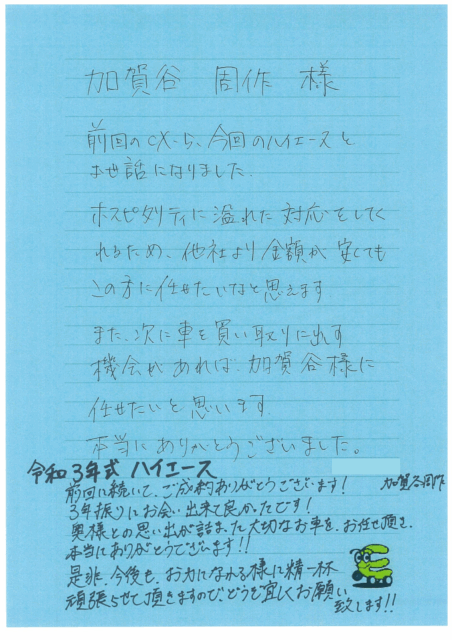 加賀谷 周作 様
前回のCX-5、今回のハイエースと
お世話になりました。
ホスピタリティに溢れた対応をしてく
れるため、他社より金額が安くても
この方に任せたいなと思えます
また、次に車を買い取りに出す
機会があれば、加賀谷様に
任せたいと思います。
本当にありがとうございました。
令和3年式 ハイエース
前回に続いて、ご成約ありがとうございます!
加賀谷周作
3年振りにお会い出来て良かったです!
奥様との思い出が詰まった大切なお車を、お任せ頂き、
本当にありがとうございます!!
是非、今後も、お力になれる様に精一杯
頑張らせて頂きますので、どうぞ宜しくお願い
致します!!